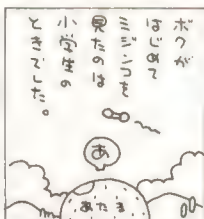 ボクが
はじめて
ミジンコを
見たのは
小学生の
ときでした。
あ
あたま